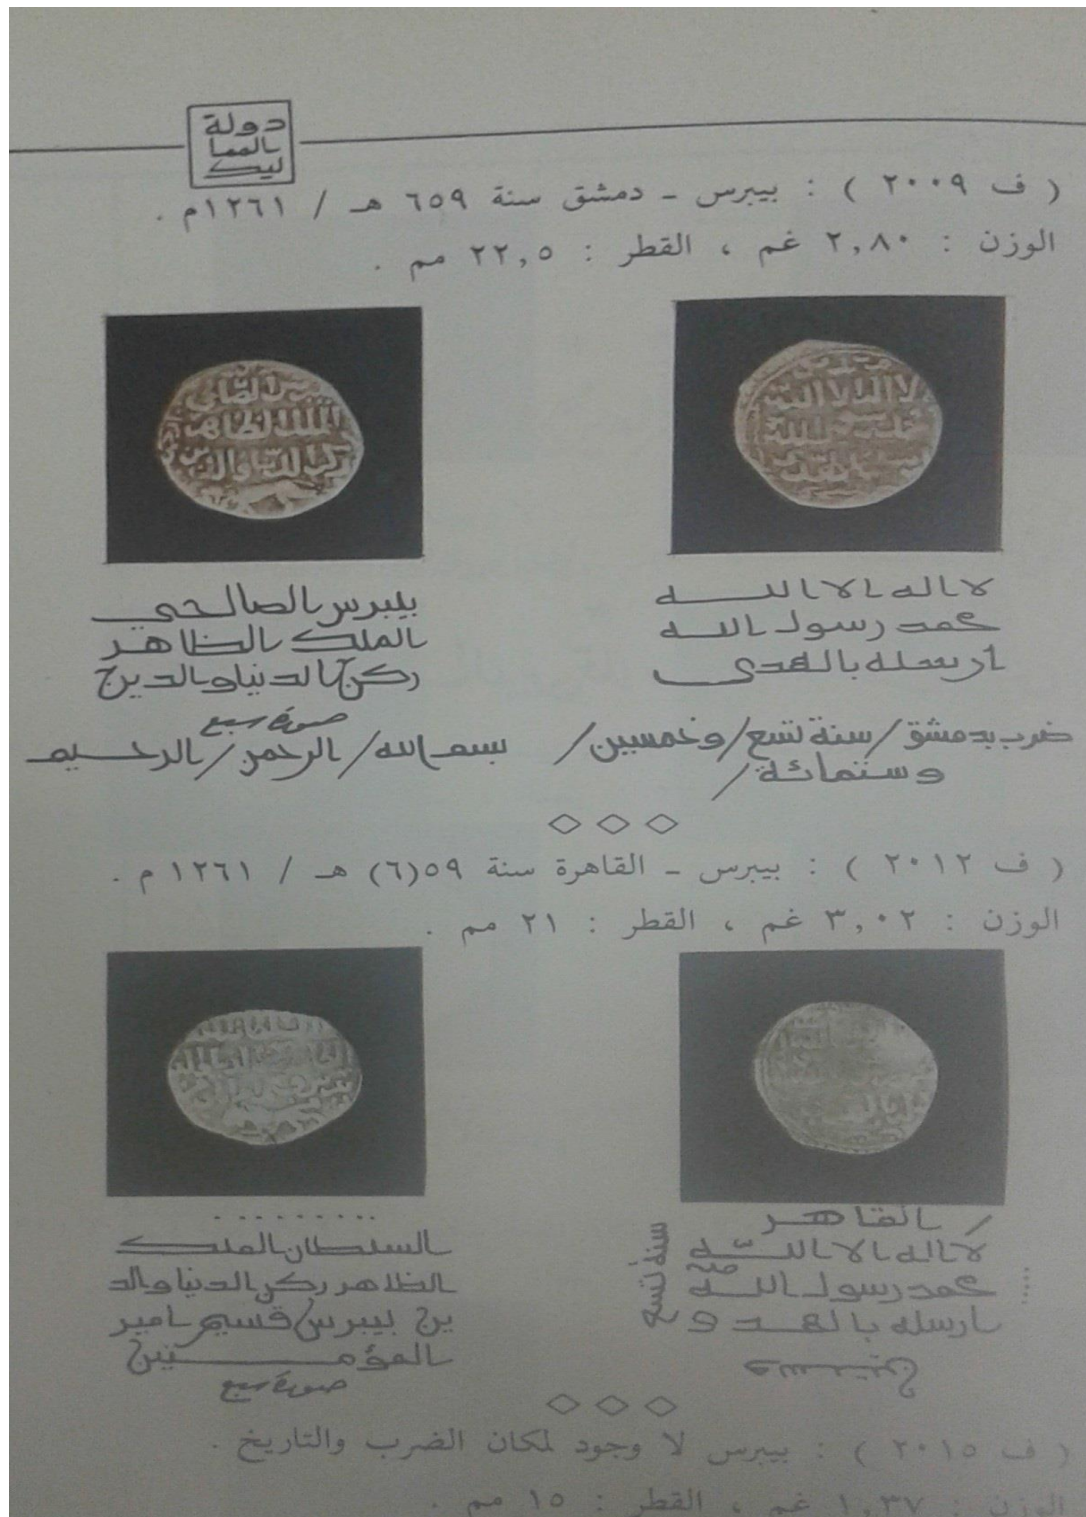 دولة
المما
ليك
( ف ٢٠٠٩ ) : بيبرس - دمشق سنة ٦٥٩ هـ / ١٢٦١م .
الوزن : ٢,٨٠ غم ، القطر : ٢٢,٥ مم .
لا اله الا الله
محمد رسول الله
ارسله بالهدى
ضرب بدمشق / سنة تسع / وخمسين /
وستمائة /
بيبرس الصالحي
الملك الظاهر
ركن الدنيا والدين
صورة سبع
بسم الله / الرحمن / الرحيم
( ف ٢٠١٢ ) : بيبرس - القاهرة سنة ٥٩(٦) هـ / ١٢٦١ م .
الوزن : ٣,٠٢ غم ، القطر : ٢١ مم .
/ القاهر
لا اله الا الله
محمد رسول الله
ارسله بالهدى و
سنة تسع
. . . .
. . . . . . . . .
السلطان الملك
الظاهر ركن الدنيا والد
ين بيبرس قسيم امير
المؤمنين
صورة سبع
( ف ٢٠١٥ ) : بيبرس لا وجود لمكان الضرب والتاريخ .
الوزن : ١,٣٧ غم ، القطر : ١٥ مم .